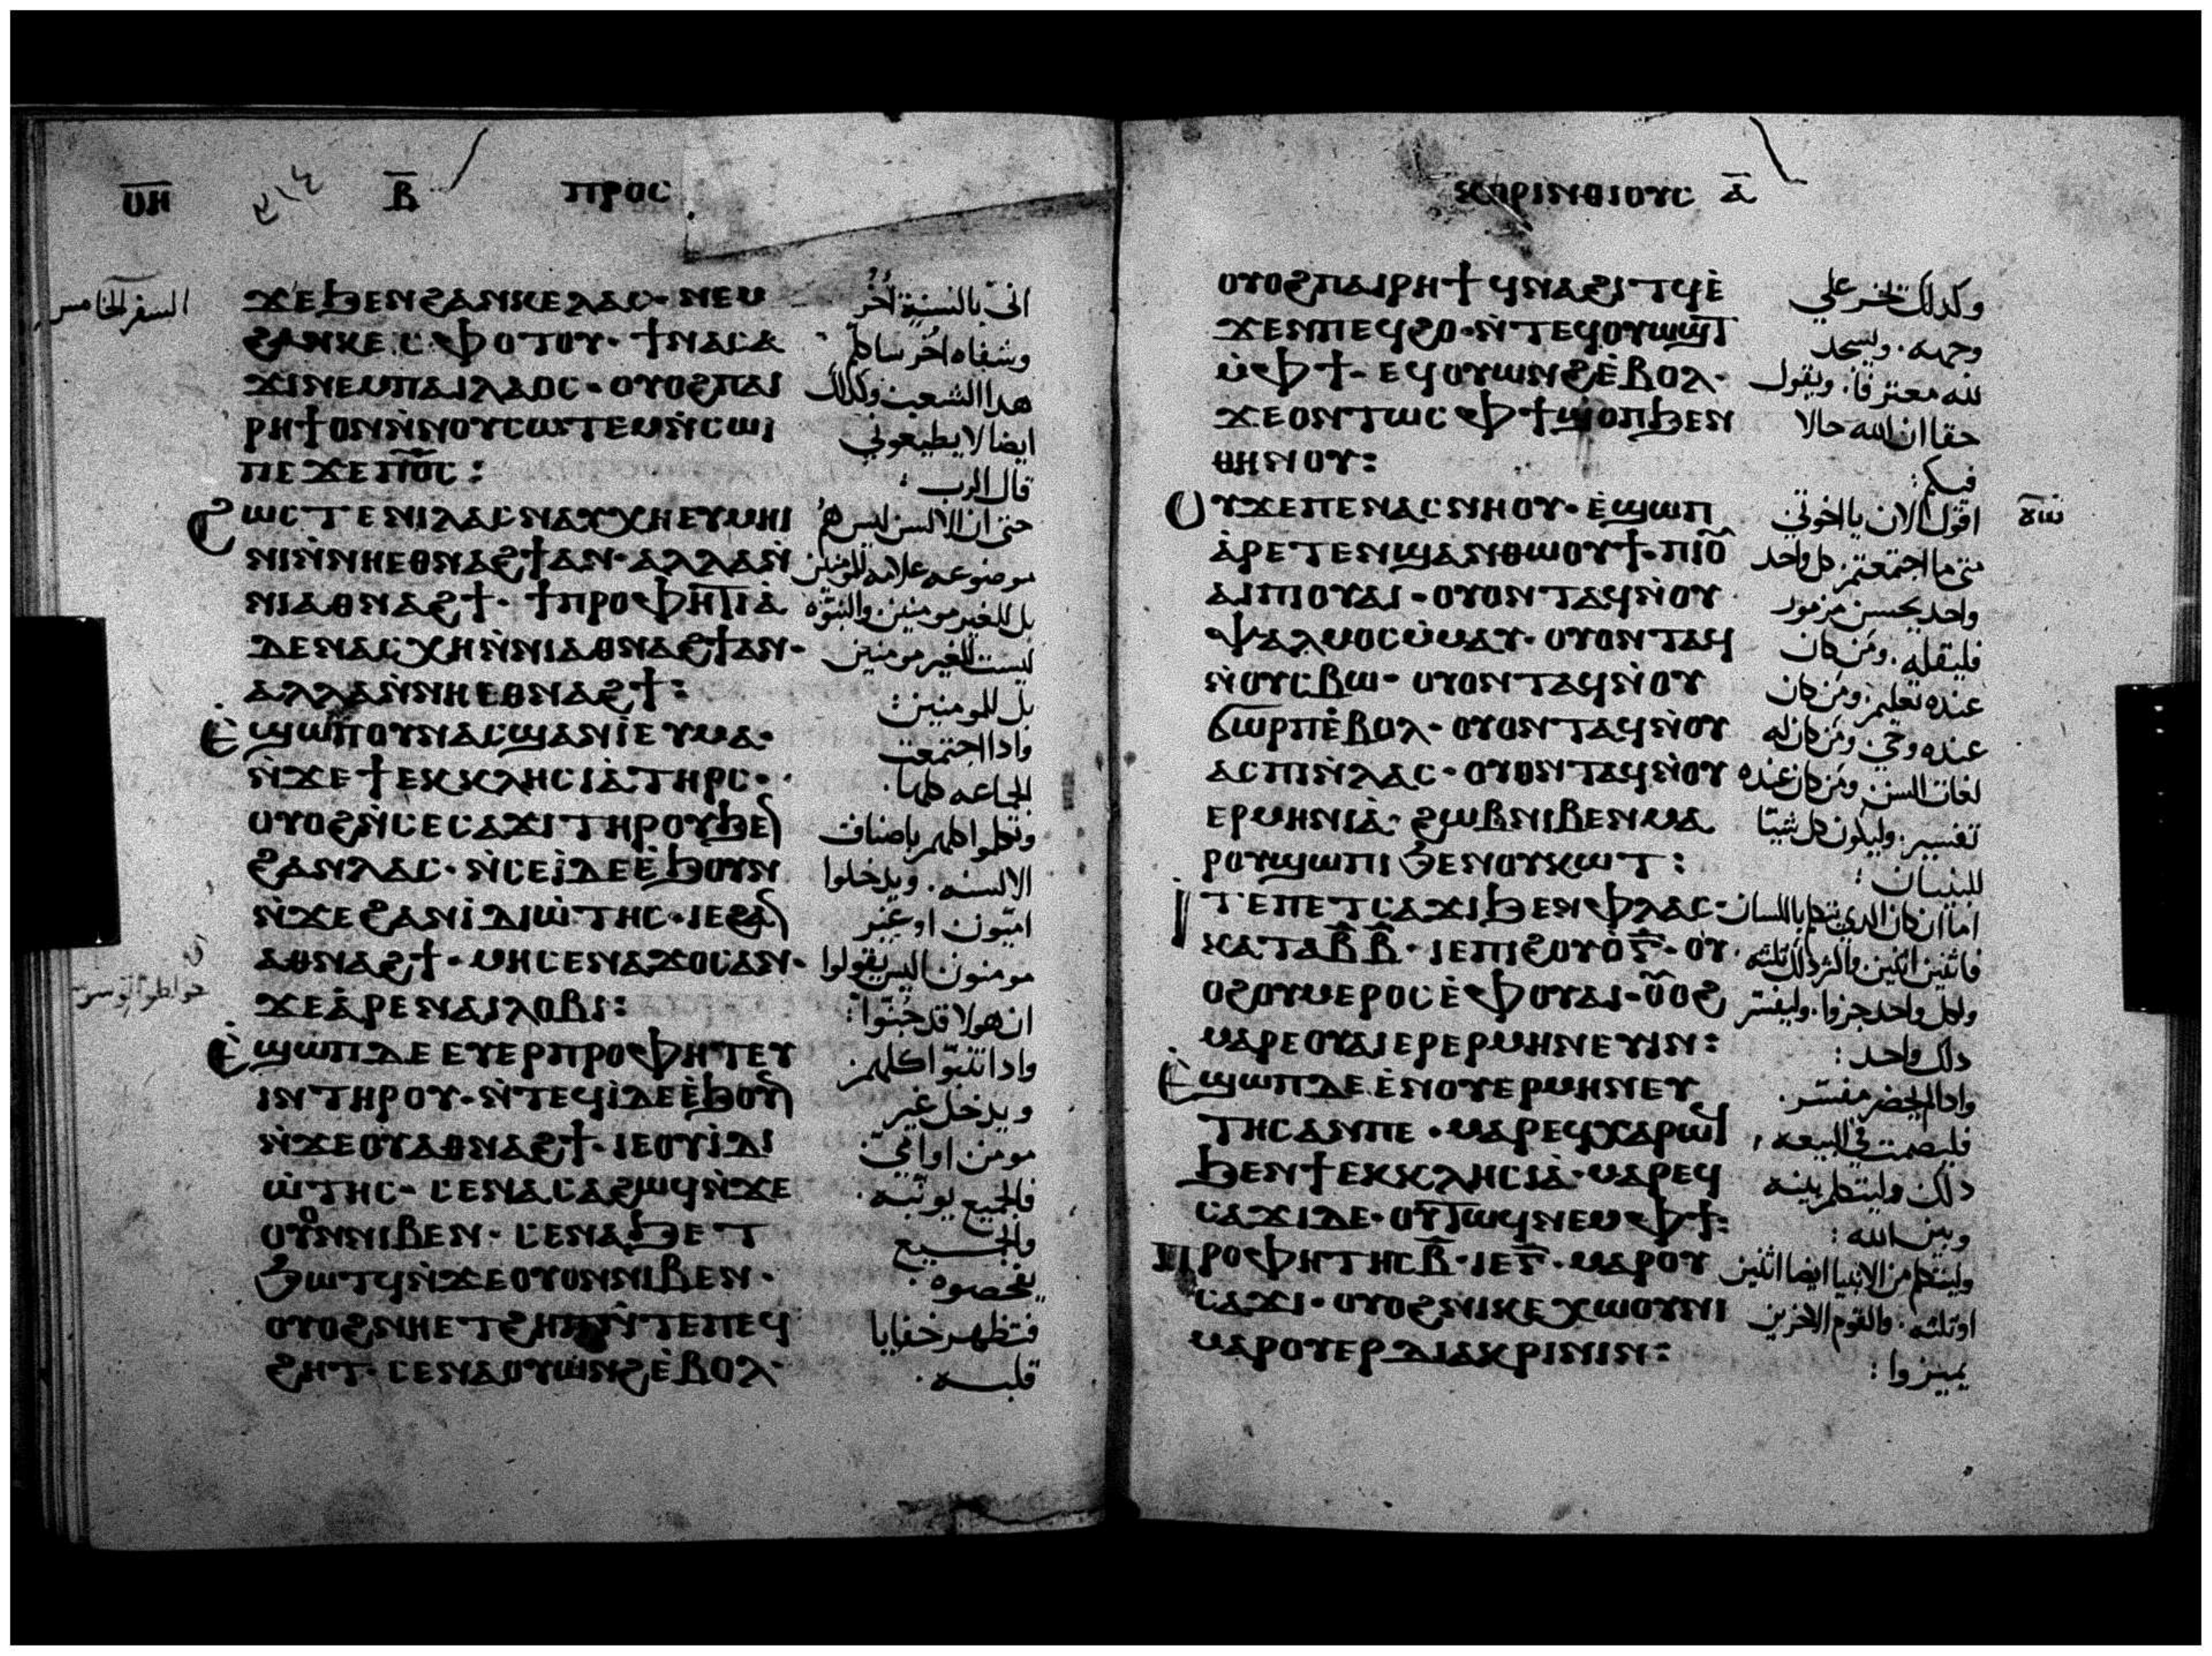 ⲟⲏ ⲃ̅ ⲡⲣⲟⲥ
ϫⲉϧⲉⲛϩⲁⲛⲕⲉⲗⲁⲥ· ⲛⲉⲙ
ϩⲁⲛⲕⲉⲥⲫⲟⲧⲟⲩ· ϯⲛⲁⲥⲁ
ϫⲓⲛⲉⲙⲡⲁⲓⲗⲁⲟⲥ· ⲟⲩⲟϩⲡⲁⲓ
ⲣⲏϯⲟⲛⲛ̀ⲛⲟⲩⲥⲱⲧⲉⲙⲛ̀ⲥⲱⲓ
ⲡⲉϫⲉⲡⲟ̅ⲥ̅:
ϩⲱⲥⲧⲉⲛⲓⲗⲁⲥⲛⲁⲩⲭⲏⲉⲩⲙⲏⲓ
ⲛⲓⲛ̀ⲛⲏⲉⲑⲛⲁϩϯⲁⲛ· ⲁⲗⲗⲁⲛ̀
ⲛⲓⲁⲑⲛⲁϩϯ· ϯⲡⲣⲟⲫⲏⲧⲓⲁ̀
ⲇⲉⲛⲁⲥⲭⲏⲛ̀ⲛⲓⲁⲑⲛⲁϩϯⲁⲛ·
ⲁⲗⲗⲁⲛ̀ⲛⲏⲉⲑⲛⲁϩϯ:
ⲉ̀ϣⲱⲡⲟⲩⲛⲁⲥϣⲁⲛⲓ̀ⲉⲩⲙⲁ·
ⲛ̀ϫⲉϯⲉⲕⲕⲗⲏⲥⲓⲁ̀ⲧⲏⲣⲥ·
ⲟⲩⲟϩⲛ̀ⲥⲉⲥⲁϫⲓⲧⲏⲣⲟⲩϧⲉⲛ
ϩⲁⲛⲗⲁⲥ· ⲛ̀ⲥⲉⲓ̀ⲇⲉⲉ̀ϧⲟⲩⲛ
ⲛ̀ϫⲉϩⲁⲛⲓ̀ⲇⲓⲱ̀ⲧⲏⲥ· ⲓⲉϩⲁⲛ
ⲁⲑⲛⲁϩϯ· ⲙⲏⲥⲉⲛⲁϫⲟⲥⲁⲛ·
ϫⲉⲁ̀ⲣⲉⲛⲁⲓⲗⲟⲃⲓ:
ⲉ̀ϣⲱⲡⲇⲉⲉⲩⲉⲣⲡⲣⲟⲫⲏⲧⲉⲩ
ⲓⲛⲧⲏⲣⲟⲩ· ⲛ̀ⲧⲉϥⲓ̀ⲇⲉⲉ̀ϧⲟⲩⲛ
ⲛ̀ϫⲉⲟⲩⲁⲑⲛⲁϩϯ· ⲓⲉⲟⲩⲓ̀ⲇⲓ
ⲱ̀ⲧⲏⲥ· ⲥⲉⲛⲁⲥⲁϩⲱϥⲛ̀ϫⲉ
ⲟⲩⲟⲛⲛⲓⲃⲉⲛ· ⲥⲉⲛⲁϧⲉⲧ
ϧⲱⲧϥⲛ̀ϫⲉⲟⲩⲟⲛⲛⲓⲃⲉⲛ·
ⲟⲩⲟϩⲛⲏⲉⲧϩⲏⲡⲛ̀ⲧⲉⲡⲉϥ
ϩⲏⲧ· ⲥⲉⲛⲁⲟⲩⲱⲛϩⲉ̀ⲃⲟⲗ·
السفر الخامس
اني بالسنة اخر
وشفاه اخر ساكلم
هدا الشعب وكدلك
ايضا لا يطيعوني
قال الرب :
حتى ان الالسن ليس هم
موضوعه علامه للمومنين
بل للغير مومنين والنبوه
ليست للغير مومنين
بل للمومنين :
وادا اجتمعت
الجماعه كلها·
وتكلموا كلهم باصناف
الالسنه· ويدخلوا
اميون او غير
مومنون اليس يقولوا
ان هولا قد جنوا :
وادا تنبوا كلهم
ويدخل غير
مومن او امي
فالجميع يوبخه·
والجميع
يفحصوه·
فتظهر خفايا
قلبه·
ⲕⲟⲣⲓⲛⲑⲓⲟⲩⲥ ⲁ̅
ⲟⲩⲟϩⲡⲁⲓⲣⲏϯϥⲛⲁϩⲓⲧϥⲉ̀
ϫⲉⲛⲡⲉϥϩⲟ· ⲛ̀ⲧⲉϥⲟⲩⲱϣⲧ
ⲙ̀ⲫϯ· ⲉϥⲟⲩⲱⲛϩⲉ̀ⲃⲟⲗ·
ϫⲉⲟⲛⲧⲱⲥⲫϯϣⲟⲡϧⲉⲛ
ⲑⲏⲛⲟⲩ:
ⲟⲩϫⲉⲡⲉⲛⲁⲥⲛⲏⲟⲩ· ⲉ̀ϣⲱⲡ
ⲁ̀ⲣⲉⲧⲉⲛϣⲁⲛⲑⲱⲟⲩϯ· ⲡⲓⲟⲩ
ⲁⲓⲡⲓⲟⲩⲁⲓ· ⲟⲩⲟⲛⲧⲁϥⲛ̀ⲟⲩ
ⲯⲁⲗⲙⲟⲥⲙ̀ⲙⲁⲩ· ⲟⲩⲟⲛⲧⲁϥ
ⲛ̀ⲟⲩⲥⲃⲱ· ⲟⲩⲟⲛⲧⲁϥⲛ̀ⲟⲩ
ϭⲱⲣⲡⲉ̀ⲃⲟⲗ· ⲟⲩⲟⲛⲧⲁϥⲛ̀ⲟⲩ
ⲁⲥⲡⲓⲛ̀ⲗⲁⲥ· ⲟⲩⲟⲛⲧⲁϥⲛ̀ⲟⲩ
ⲉⲣⲙⲏⲛⲓⲁ̀· ϩⲱⲃⲛⲓⲃⲉⲛⲙⲁ
ⲣⲟⲩϣⲱⲡⲓϧⲉⲛⲟⲩⲕⲱⲧ:
ⲓⲧⲉⲡⲉⲧⲥⲁϫⲓϧⲉⲛⲫⲗⲁⲥ·
ⲕⲁⲧⲁⲃ̅ⲃ̅· ⲓⲉⲡⲓϩⲟⲩⲟ̀ⲅ̅· ⲟⲩ
ⲟϩⲟⲩⲙⲉⲣⲟⲥⲉ̀ⲫⲟⲩⲁⲓ· ⲟⲩⲟϩ
ⲙⲁⲣⲉⲟⲩⲁⲓⲉⲣⲉⲣⲙⲏⲛⲉⲩⲓⲛ:
ⲉ̀ϣⲱⲡⲇⲉⲉ̀ⲛⲟⲩⲉⲣⲙⲏⲛⲉⲩ
ⲧⲏⲥⲁⲛⲡⲉ· ⲙⲁⲣⲉϥⲭⲁⲣⲱϥ
ϧⲉⲛϯⲉⲕⲕⲗⲏⲥⲓⲁ̀· ⲙⲁⲣⲉϥ
ⲥⲁϫⲓⲇⲉ· ⲟⲩⲧⲱϥⲛⲉⲙⲫϯ:
ⲡⲣⲟⲫⲏⲧⲏⲥⲃ̅· ⲓⲉⲅ̅· ⲙⲁⲣⲟⲩ
ⲥⲁϫⲓ· ⲟⲩⲟϩⲛⲓⲕⲉⲭⲱⲟⲩⲛⲓ
ⲙⲁⲣⲟⲩⲉⲣⲇⲓⲁⲕⲣⲓⲛⲓⲛ:
وكدلك يخر علي
وجهه· ويسجد
لله معترفا· ويقول
حقا ان الله حالا
فيكم :
اقول الان يا اخوتي
متى ما اجتمعتم· كل واحد
واحد يحسن مزمور
فليقله· ومن كان
عنده تعليم· ومن كان
عنده وحي ومن كان له
لغات السن· ومن كان عنده
تفسير· وليكون كل شيا
للبنيان :
اما ان كان الدي يتكلم باللسان
فاثنين اثنين واكثر دلك ثلثه
ولكل واحد جزوا· وليفسر
دلك واحد :
وادا لم يحضر مفسر·
فليصمت في البيعه
دلك وليتكلم بينه
وبين الله :
وليتكلم من الانبيا ايضا اثنين
او ثلثه· والقوم الاخرين
يميزوا :